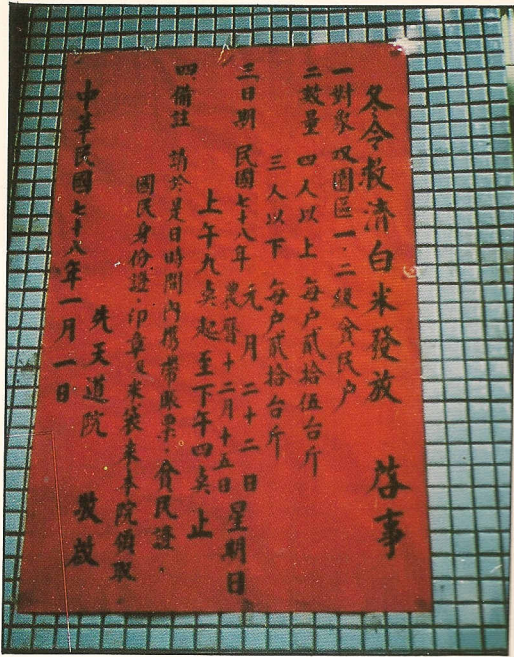 冬令救濟白米發放　啓事
一對象 双園區一．二級貧民户
二數量 四人以上 每户貳拾伍台斤
三人以下 每户貳拾台斤
三日期 民國七十八年 元月二十二日 農曆十二月十五日 星期日
上午九奌起至下午四奌止
四備註 請於是日時間內携帶賑票．貧民證．
國民身份證．印章及米袋來本院領取．
先天道院　敬啟
中華民國七十八年一月一日